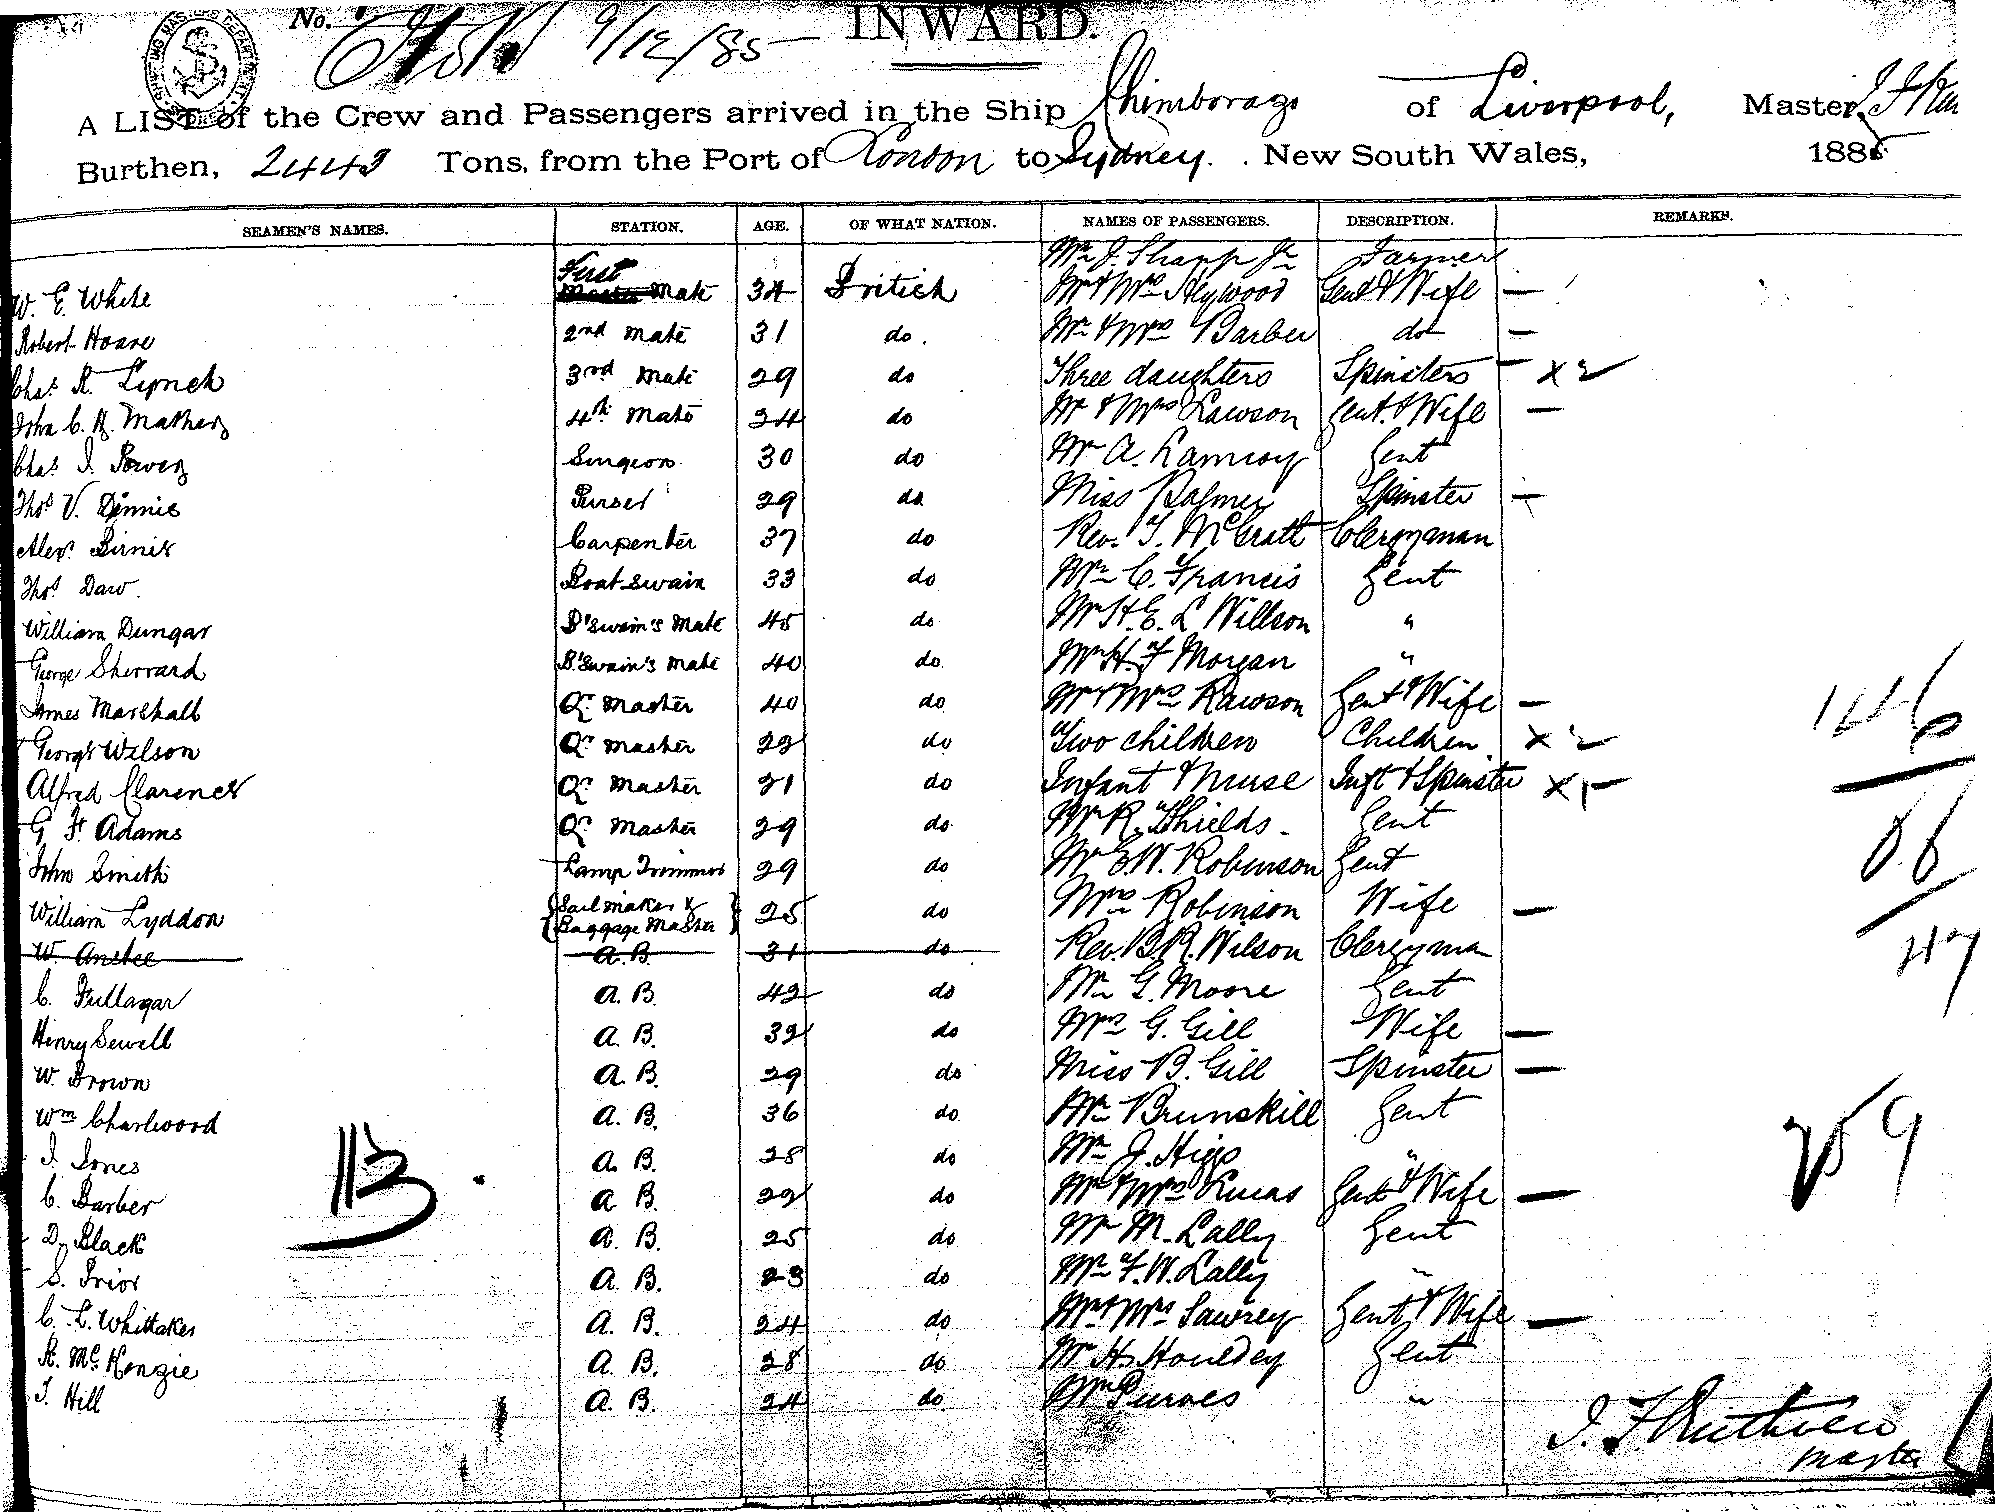 No. 9/12/85 INWARD.
A LIST of the Crew and Passengers arrived in the Ship Chimborazo of Liverpool, Master, J F
Burthen, 2443 Tons, from the Port of London to Sydney. New South Wales, 1885
SEAMEN'S NAMES. STATION. AGE. OF WHAT NATION. NAMES OF PASSENGERS. DESCRIPTION. REMARKS.
Mr J. Sharp Jr Farmer
W. E. White First Mate 34 British Mr & Mrs Heywood Gent & Wife —
Robert Hoare 2nd Mate 31 do. Mr & Mrs Barber do —
Chas. R. Lynch 3rd Mate 29 do Three daughters Spinsters — x 2
John C. H. Mathers 4th Mate 24 do Mr & Mrs Lawson Gent. & Wife —
Chas. J. Power Surgeon 30 do Mr A. Lamroy Gent
Thos V. Dennis Purser 29 do Miss Palmer Spinster —
Alexr. Birnie Carpenter 37 do Rev. T. McGrath Clergyman
Thos. Daw. Boatswain 33 do Mr C. Francis Gent
William Dungar B'swain's Mate 45 do Mr H. E. L Willson "
George Sherrard B'swain's Mate 40 do Mr H. F Morgan "
James Marshall Qr Master 40 do Mr & Mrs Rawson Gent & Wife —
George Wilson Qr Master 22 do Two children Children x 2
Alfred Clarence Qr Master 21 do Infant & Nurse Inft & Spinster x 1
G. H. Adams Qr Master 29 do Mr R. Shields. Gent
John Smith Lamp Trimmer 29 do Mr E. W. Robinson Gent
William Lyddon Sailmaker & Baggage Master 25 do Mrs Robinson Wife —
W. Anstee A.B. 31 do Rev. B. R. Wilson Clergyman 47
C. Fullagar A. B. 42 do Mr G. Moore Gent
Henry Sewell A. B. 32 do Mrs G. Gill Wife —
W. Brown A. B. 29 do Miss B. Gill Spinster —
Wm Charlwood A. B. 36 do Mr Brunskill Gent
J. Jones A. B. 28 do Mr J. Higgs " 259
113.
C. Barber A B. 22 do Mr & Mrs Lucas Gent & Wife —
D. Black A. B. 25 do Mr M. Lally Gent
S. Prior A. B. 23 do Mr F. W. Lally "
C. L. Whittaker A. B. 24 do Mr & Mrs Sawrey Gent & Wife —
R. McKenzie A. B. 28 do Mr H. Houldey Gent
T. Hill A. B. 24 do Mr Purves "
J. F Ruthven
Master